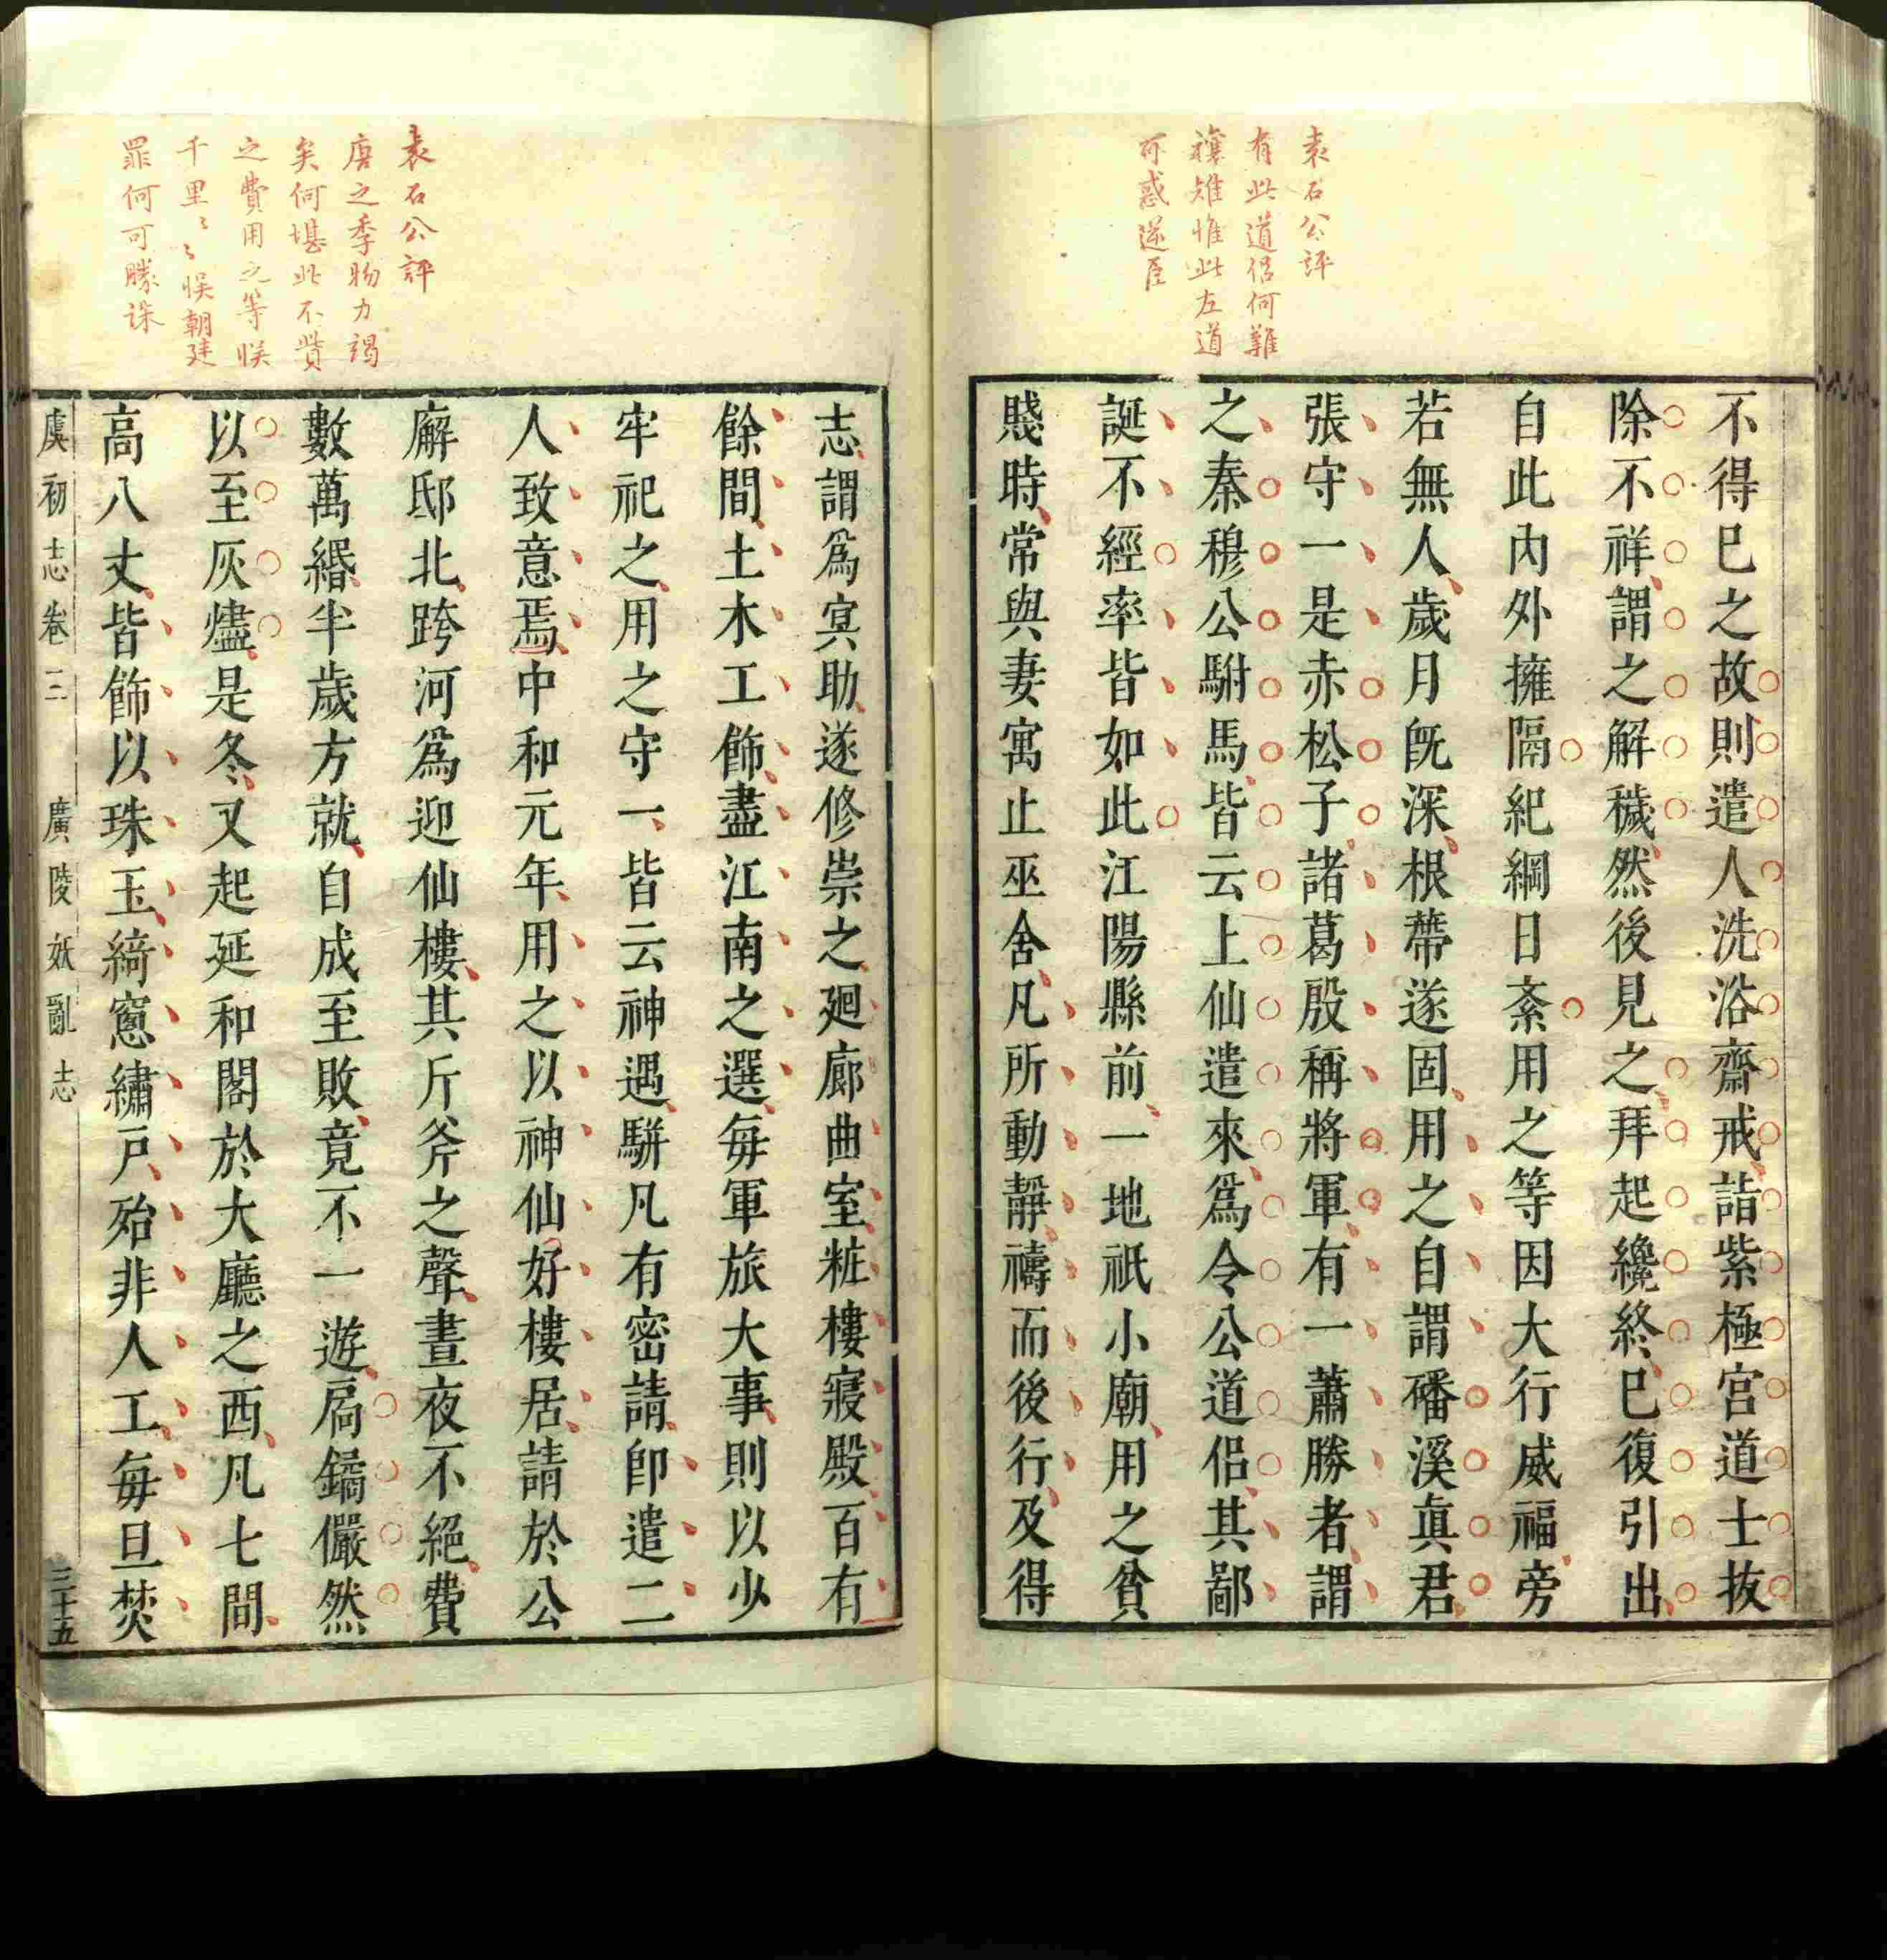 袁石公評
有此道侶何難
穰雉惟此左道
可惑逆臣
不得巳之故則遣人洗浴齋戒詣紫極宮道士抜
除不祥謂之解穢然後見之拜起纔終巳復引出
自此內外擁隔紀綱日紊用之等因大行威福旁
若無人歲月旣深根蔕遂固用之自謂磻溪眞君
張守一是赤松子諸葛殷稱將軍有一蕭勝者謂
之秦穆公駙馬皆云上仙遣來爲令公道侶其鄙
誕不經率皆如此江陽縣前一地祇小廟用之貧
賤時常與妻寓止巫舍凡所動靜禱而後行及得
袁石公評
唐之季物力竭
矣何堪此不貲
之費用之等悞
千里〻〻悞朝廷
罪何可勝誅
志謂爲冥助遂修崇之廻廊曲室粧樓寢殿百有
餘間土木工飾盡江南之選每軍旅大事則以少
牢祀之用之守一皆云神遇騈凡有密請卽遣二
人致意焉中和元年用之以神仙好樓居請於公
廨邸北跨河爲迎仙樓其斤斧之聲晝夜不絕費
數萬緡半歲方就自成至敗竟不一遊扃鐍儼然
以至灰燼是冬又起延和閣於大廳之西凡七間
高八丈皆飾以珠玉綺窻繡戶殆非人工每旦焚
虞初志卷三 廣陵妖亂志 三十五